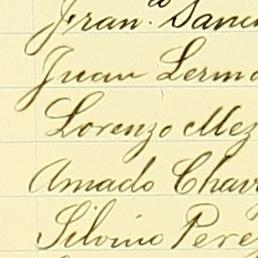 Fran.co Sanc
Juan Lerma
Lorenzo Mez
Amado Chav
Silvino Perez